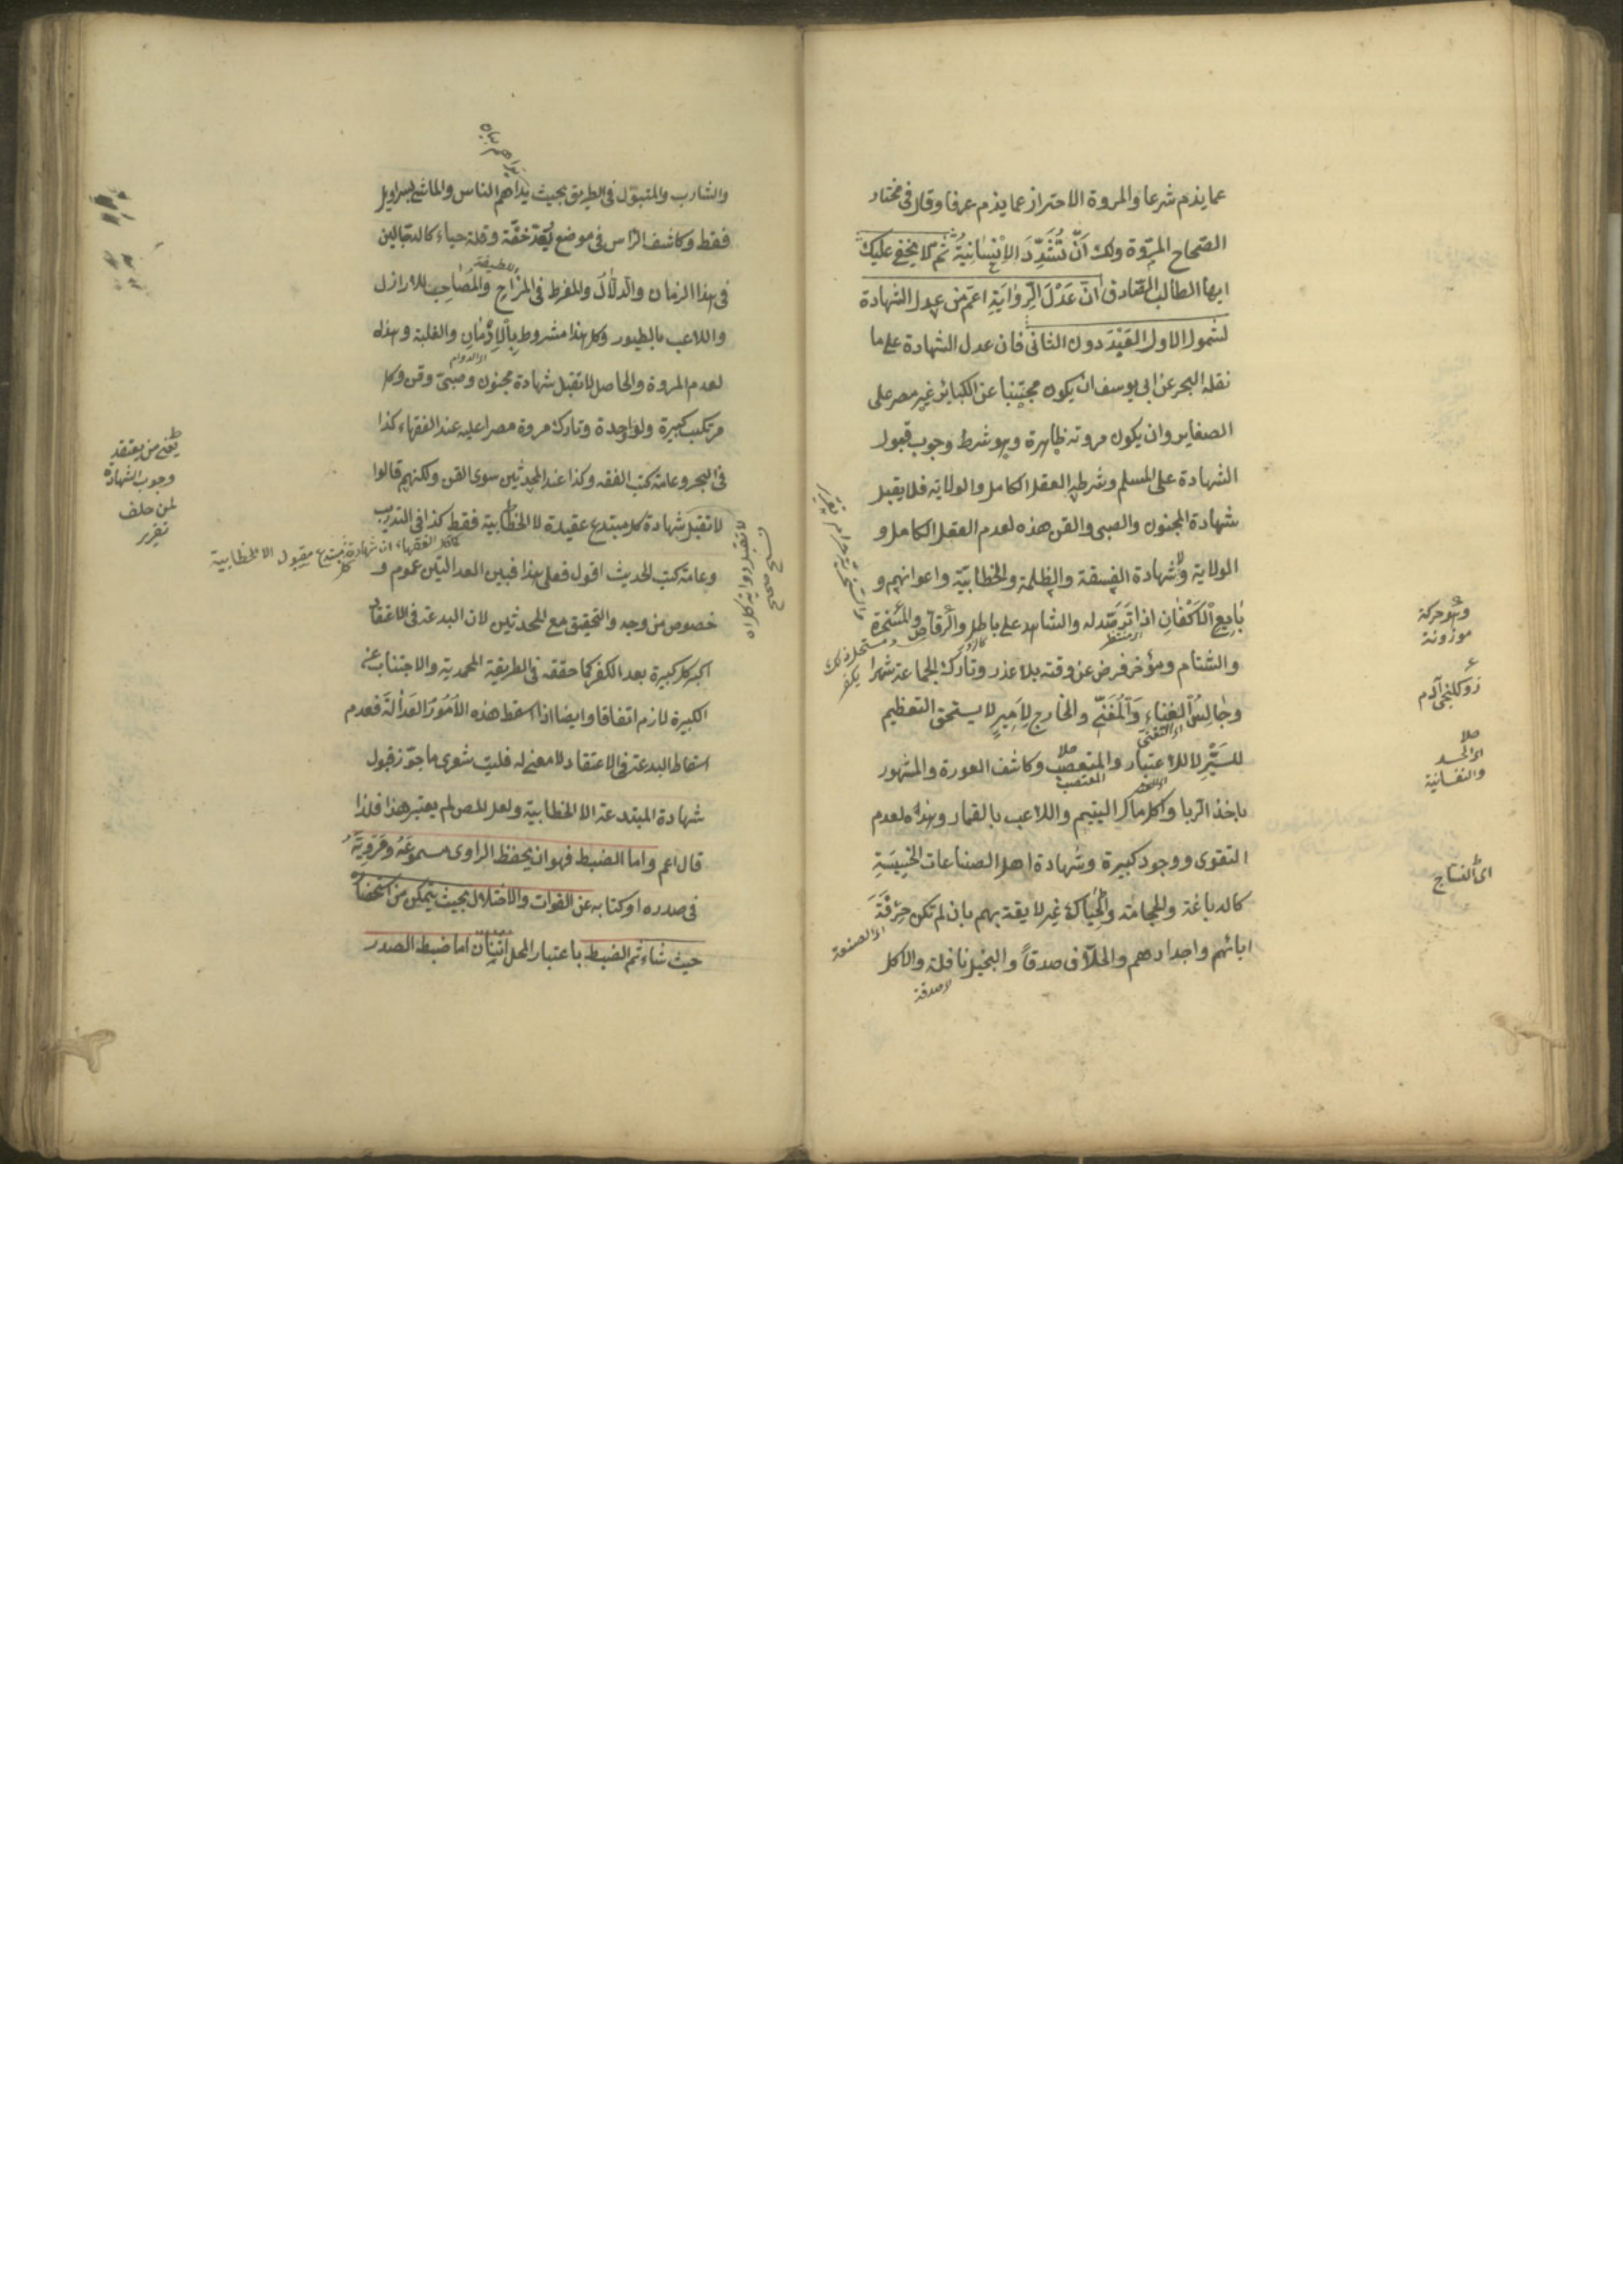 عما يذم شرعا والمروة الاحتراز عما يذم عرفا وقال في مختار
الصّحاح المروّة ولك اَنّ تُشَدِّدَ الاِنْسَانِيَّةُ ثم لا يخفى عليك
ايها الطالب الصّادق انّ عَدْلَ الرِّوَايَةِ اعمّ من عدل الشهادة
لشمول الاول القيْدَ دون الثانى فان عدل الشهادة على ما
نقله البحر عن ابى يوسف ان يكون مجتنبا عن الكبائر غير مصر على
الصغاير وان يكون مروته ظاهرة وهو شرط وجوب قبول
الشهادة على المسلم وشرطه العقل الكامل والولاية فلا يقبل
شهادة المجنون والصبى والقن هذه لعدم العقل الكامل و
الولاية ولا شهادة الفسقة والظلمة والخطابيّة واعوانهم و
بَايِع الْاَكْفَانِ اذا تَرَصَّد له والشاهد على باطل والرقاص والمسخرة
والشتام ومؤخر فرض عن وقته بلا عذر وتارك الجماعة شهرا
وجالِسُ الغِناءِ وَالْمُغَنّى والخارج لِاَمِيرٍ لا يستحق التعظيم
للسَيْرِ لا للاعتبار والمتعصّب وكاشف العورة والمشهور
باخذ الربا واكل مال اليتيم واللاعب بالقمار وهذه لعدم
التقوى ووجود كبيرة وشهادة اهل الصناعات الخَسِيسَةِ
كالدباغة والحجامة والحِياكَة غير لايقة بهم بان لم تكن حِرْفَةَ
ابائهم واجدادهم والحلّاف صدقاً والبخيل نافلة والاكل
وهو حركة
موزونة
اى الحسد
والنفسانية
اى النساج
اى الصنعة
اى صدقة
والشارب والمتبوّل فى الطريق بحيث يراهم الناس والماشى بسراويل
فقط وكاشف الرّاس فى موضع يُعَدّ خفّة وقلة حياء كالدجالين
فى هذا الزمان والدلّال والمفرط فى المزاح والمُصَاحِب للاراذل
واللاعب بالطيور وكل هذا مشروط بِالْاِدْمَانِ والغلبة وهذه
لعدم المروة والحاصل لا تقبل شهادة مجنون وصبىّ وقن وكل
مرتكب كبيرة ولو واحدة وتارك مروة مصرا عليه عند الفقهاء كذا
فى البحر وعامة كتب الفقه وكذا عند المحدثين سوى القن ولكنهم قالوا
لا تقبل شهادة كل مبتدع عقيدة لا الخطابية فقط كذا فى التدريب
وعامة كتب الحديث اقول فعلى هذا فبين العدالتين عموم و
خصوص من وجه والتحقيق مع المحدثين لان البدعة فى الاعتقاد
اكبر كل كبيرة بعد الكفر كما حققه فى الطريقة المحمدية والاجتناب عن
الكبيرة لازم اتفاقا وايضا اذا اسقط هذه الاُمُورُ العَدَالَةَ فعدم
اسقاط البدعة فى الاعتقاد لا معنى له فليت شعرى ما جوّز قبول
شهادة المبتدعة الا الخطابية ولعل المص لم يعتبر هذا فلذا
قال اعم واما الضبط فهو ان يحفظ الراوى مسموعَهُ ومَرْوِيَّهُ
فى صدره او كتابه عن الفوات والاختلال بحيث يتمكن من استحضاره
حيث شاء ثم الضبط باعتبار المحل اثنان اما ضبط الصدر
يعنى من يعتقد
وجوب الشهادة
لمن حلف
تقرير
اى لطيفة
اى الدوام
قال الفقهاء ان شهادة كل مبتدع مقبول الا الخطابية